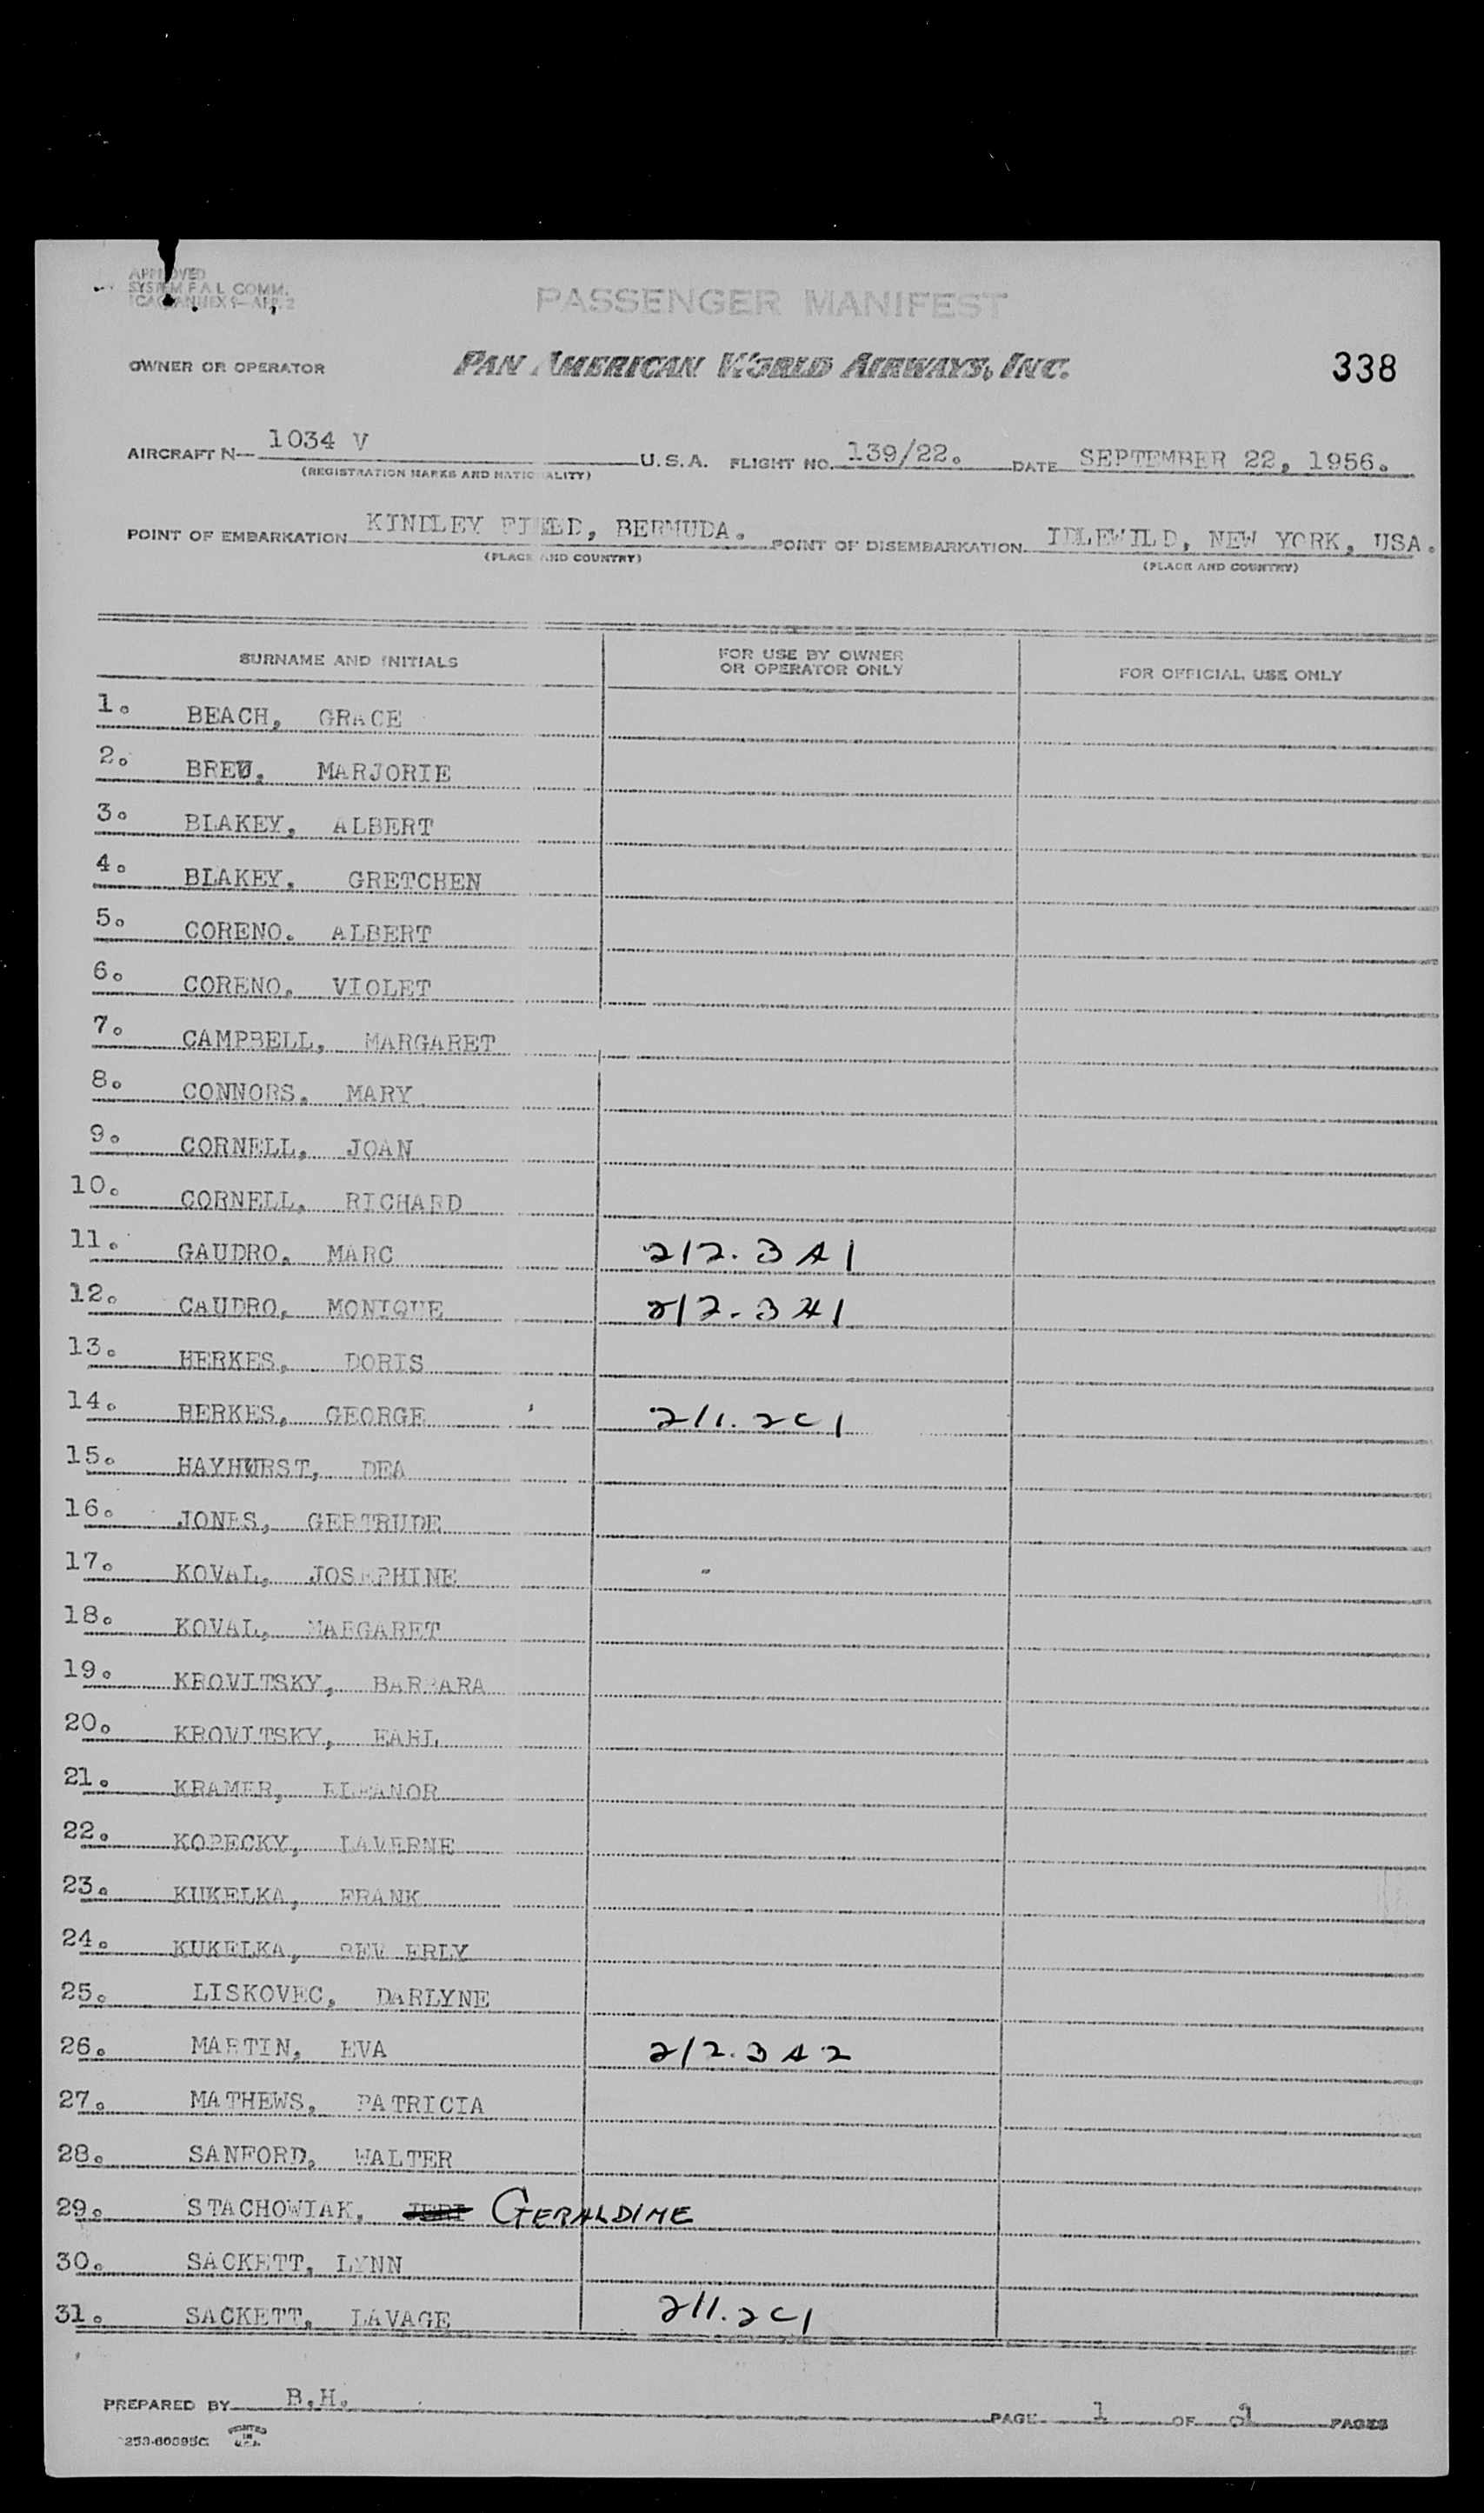 APPROVED
SYSTEM F A L COMM.
ICAO ANNEX 9—APP. 2
PASSENGER MANIFEST
OWNER OR OPERATOR PAN AMERICAN WORLD AIRWAYS, INC. 338
AIRCRAFT N— 1034 V U.S.A. FLIGHT NO. 139/22. DATE SEPTEMBER 22, 1956.
(REGISTRATION MARKS AND NATIONALITY)
POINT OF EMBARKATION KINDLEY FIELD, BERMUDA. POINT OF DISEMBARKATION IDLEWILD, NEW YORK, USA.
(PLACE AND COUNTRY) (PLACE AND COUNTRY)
SURNAME AND INITIALS FOR USE BY OWNER OR OPERATOR ONLY FOR OFFICIAL USE ONLY
1. BEACH, GRACE
2. BREW, MARJORIE
3. BLAKEY, ALBERT
4. BLAKEY, GRETCHEN
5. CORENO. ALBERT
6. CORENO, VIOLET
7. CAMPBELL, MARGARET
8. CONNORS, MARY
9. CORNELL, JOAN
10. CORNELL, RICHARD
11. GAUDRO, MARC 212.3A1
12. GAUDRO, MONIQUE 212.3A1
13. HERKES, DORIS
14. HERKES, GEORGE 211.2C1
15. HAYHURST, DEA
16. JONES, GERTRUDE
17. KOVAL, JOSEPHINE
18. KOVAL, MARGARET
19. KROVITSKY, BARBARA
20. KROVITSKY, EARL
21. KRAMER, ELEANOR
22. KOPECKY, LAVERNE
23. KUKELKA, FRANK
24. KUKELKA, BEVERLY
25. LISKOVEC, DARLYNE
26. MARTIN, EVA 212.3A2
27. MATHEWS, PATRICIA
28. SANFORD, WALTER
29. STACHOWIAK, JERI GERALDINE
30. SACKETT, LYNN
31. SACKETT, LAVAGE 211.2C1
PREPARED BY B.H. PAGE 1 OF PAGES
PRINTED IN U.S.A.